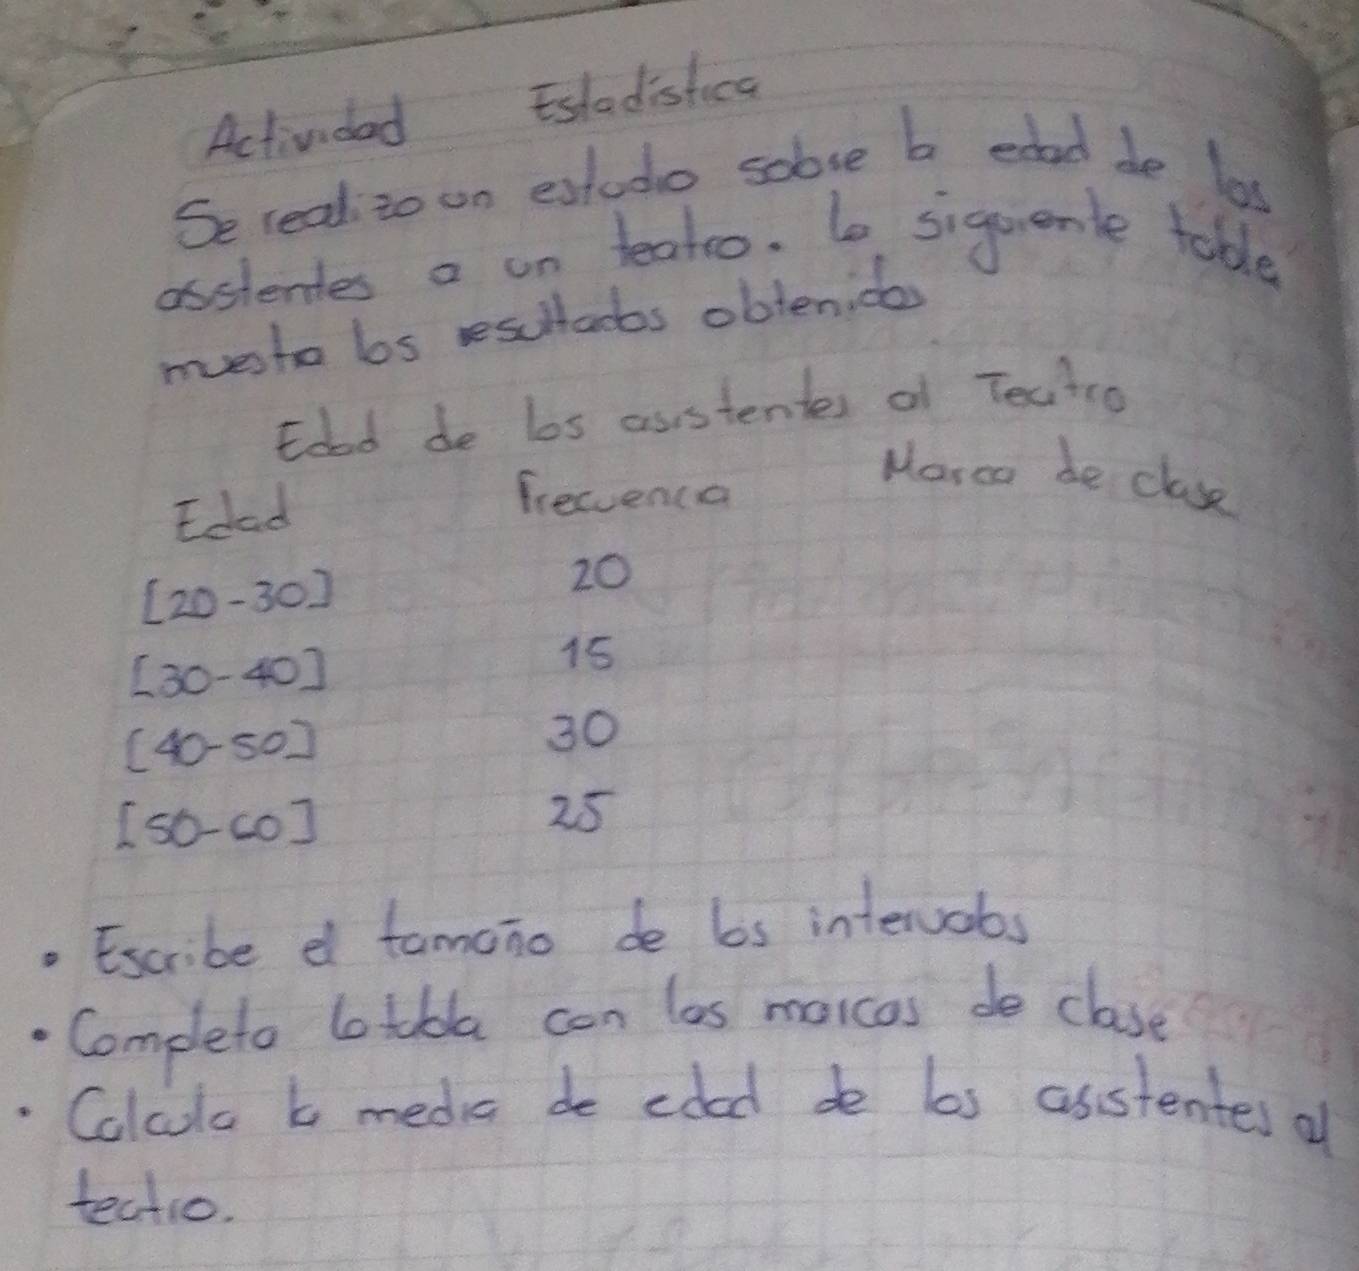 Actividad Estadistica
Se realizo un estudio sobre la edad de los
asistentes a un teatro. la siguiente tabla
muestra los resultados obtenidos
Edad de los asistentes al Teatro
Edad Frecuencia Marca de clase
[20-30] 20
[30-40] 15
[40-50] 30
[50-60] 25
• Escribe el tamaño de los intervalos
• Completa la tabla con las marcas de clase
• Calcula la media de edad de los asistentes al
teatro.